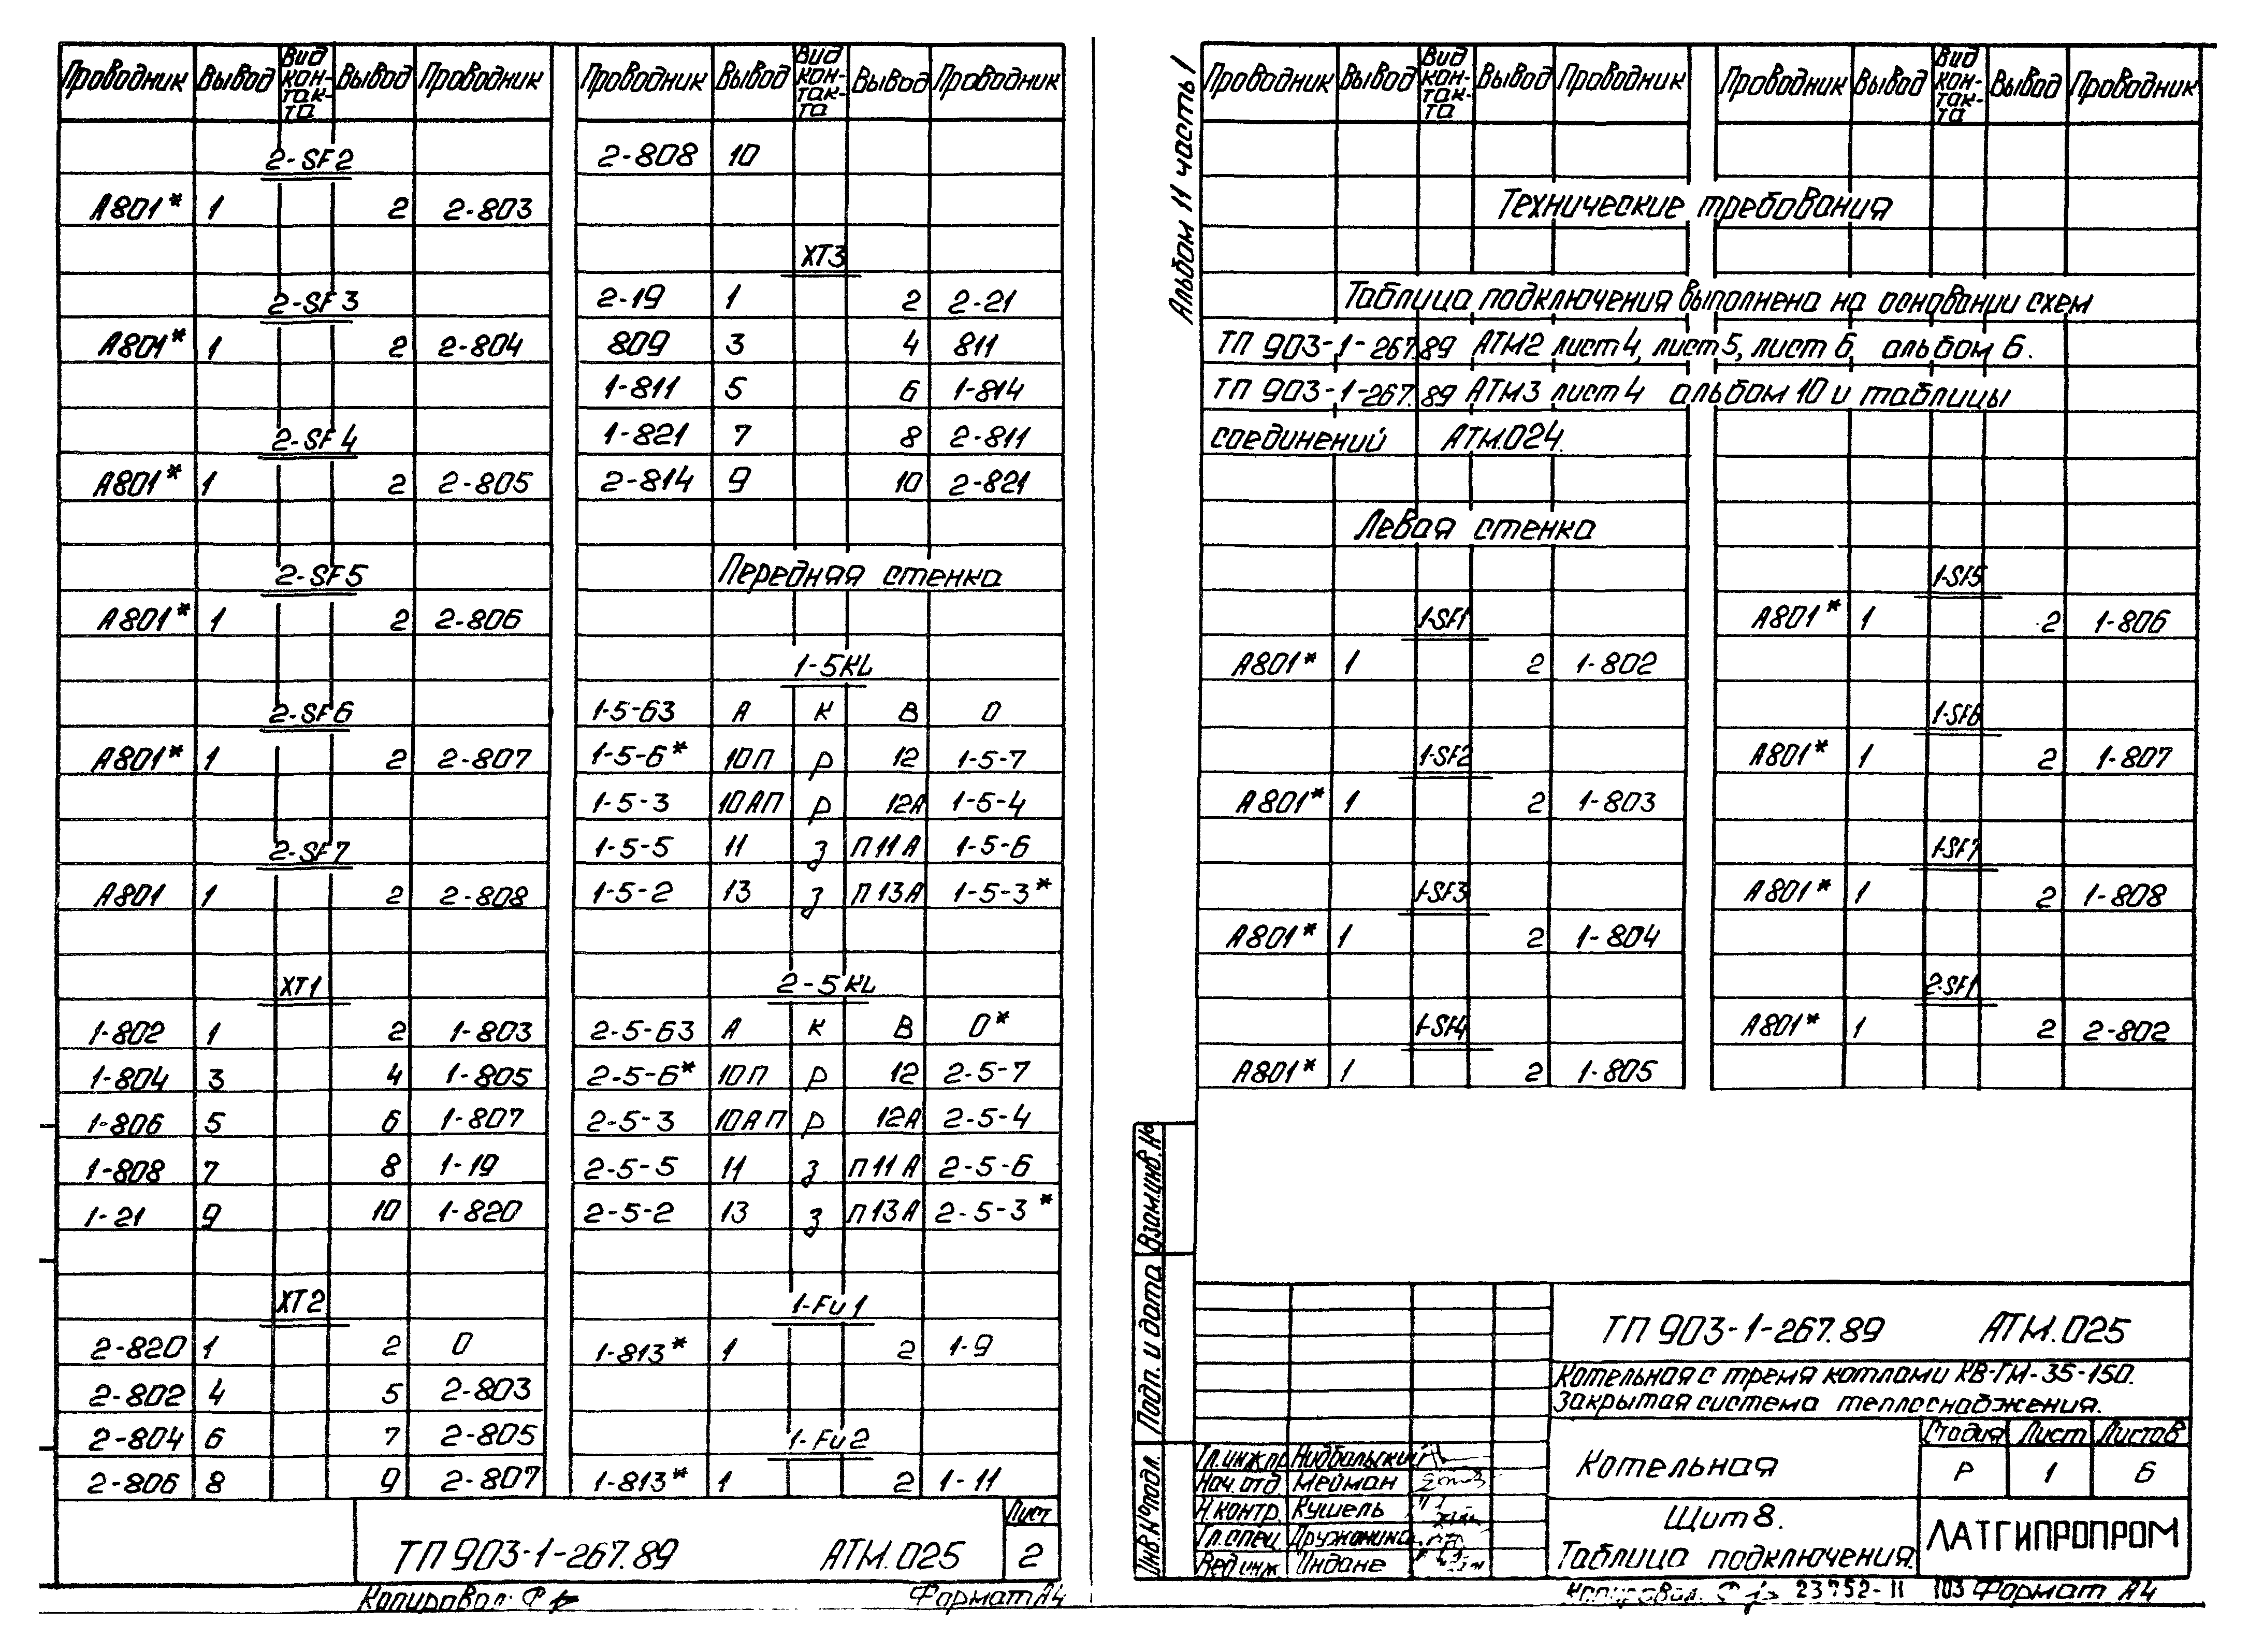 Проводник Вывод Вид кон- так- та Вывод Проводник
2-SF2
А801* 1 2 2-803
2-SF3
А801* 1 2 2-804
2-SF4
А801* 1 2 2-805
2-SF5
А801* 1 2 2-806
2-SF6
А801* 1 2 2-807
2-SF7
А801 1 2 2-808
ХТ1
1-802 1 2 1-803
1-804 3 4 1-805
1-806 5 6 1-807
1-808 7 8 1-19
1-21 9 10 1-820
ХТ2
2-820 1 2 0
2-802 4 5 2-803
2-804 6 7 2-805
2-806 8 9 2-807
Проводник Вывод Вид кон- так- та Вывод Проводник
2-808 10
ХТ3
2-19 1 2 2-21
809 3 4 811
1-811 5 6 1-814
1-821 7 8 2-811
2-814 9 10 2-821
Передняя стенка
1-5KL
1-5-63 А К В 0
1-5-6* 10П р 12 1-5-7
1-5-3 10АП р 12А 1-5-4
1-5-5 11 з П11А 1-5-6
1-5-2 13 з П13А 1-5-3*
2-5KL
2-5-63 А К В 0*
2-5-6* 10П р 12 2-5-7
2-5-3 10АП р 12А 2-5-4
2-5-5 11 з П11А 2-5-6
2-5-2 13 з П13А 2-5-3*
1-Fu1
1-813* 1 2 1-9
1-Fu2
1-813* 1 2 1-11
ТП 903-1-267.89 АТМ.025
Лист
2
Копировал.
Формат А4
Альбом 11 часть 1
Проводник Вывод Вид кон- так- та Вывод Проводник
Проводник Вывод Вид кон- так- та Вывод Проводник
Технические требования
Таблица подключения выполнена на основании схем
ТП 903-1-267.89 АТМ2 лист 4, лист 5, лист 6 альбом 6.
ТП 903-1-267.89 АТМ3 лист 4 альбом 10 и таблицы
соединений АТМ.024.
Левая стенка
1-SF1
А801* 1 2 1-802
1-SF2
А801* 1 2 1-803
1-SF3
А801* 1 2 1-804
1-SF4
А801* 1 2 1-805
1-SF5
А801* 1 2 1-806
1-SF6
А801* 1 2 1-807
1-SF7
А801* 1 2 1-808
2-SF1
А801* 1 2 2-802
Взам.инв.№
Подп. и дата
Инв.№подл.
ТП 903-1-267.89 АТМ.025
Котельная с тремя котлами КВ-ГМ-35-150.
Закрытая система теплоснабжения.
Котельная
Стадия Лист Листов
Р 1 6
Щит 8.
Таблица подключения.
ЛАТГИПРОПРОМ
Гл.инж.пр Нидбальский
Нач.отд Мейман
Н.контр. Кушель
Гл.спец.
Вед.инж Индане
Копировал. 23752-11 103 Формат А4